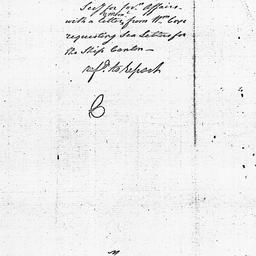 Secy for Forn. Affairs.
with a letter from Wm
requesting Sea Letters for
the Ship Canton —
refd. to report